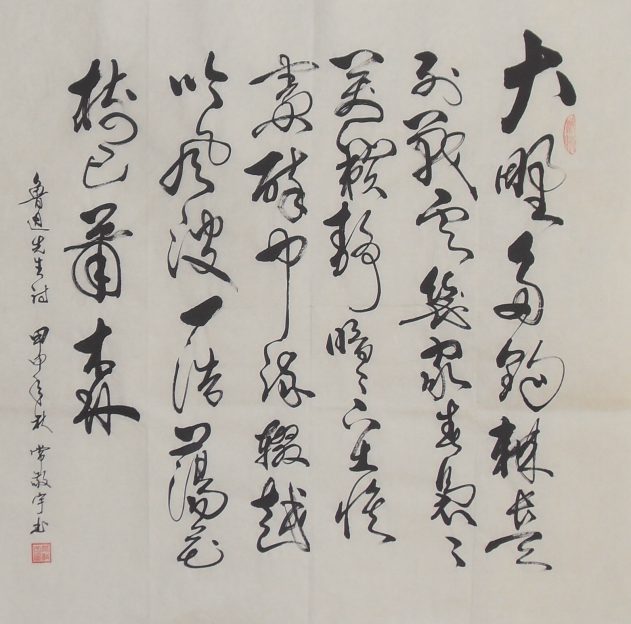 大野多鉤棘長天
列戰雲幾家春裊々
萬籟靜暗々下土惟
秦醉中流輟越
吟風波一浩蕩花
樹已蕭森
魯迅先生詩 甲申年秋 常敬宇书